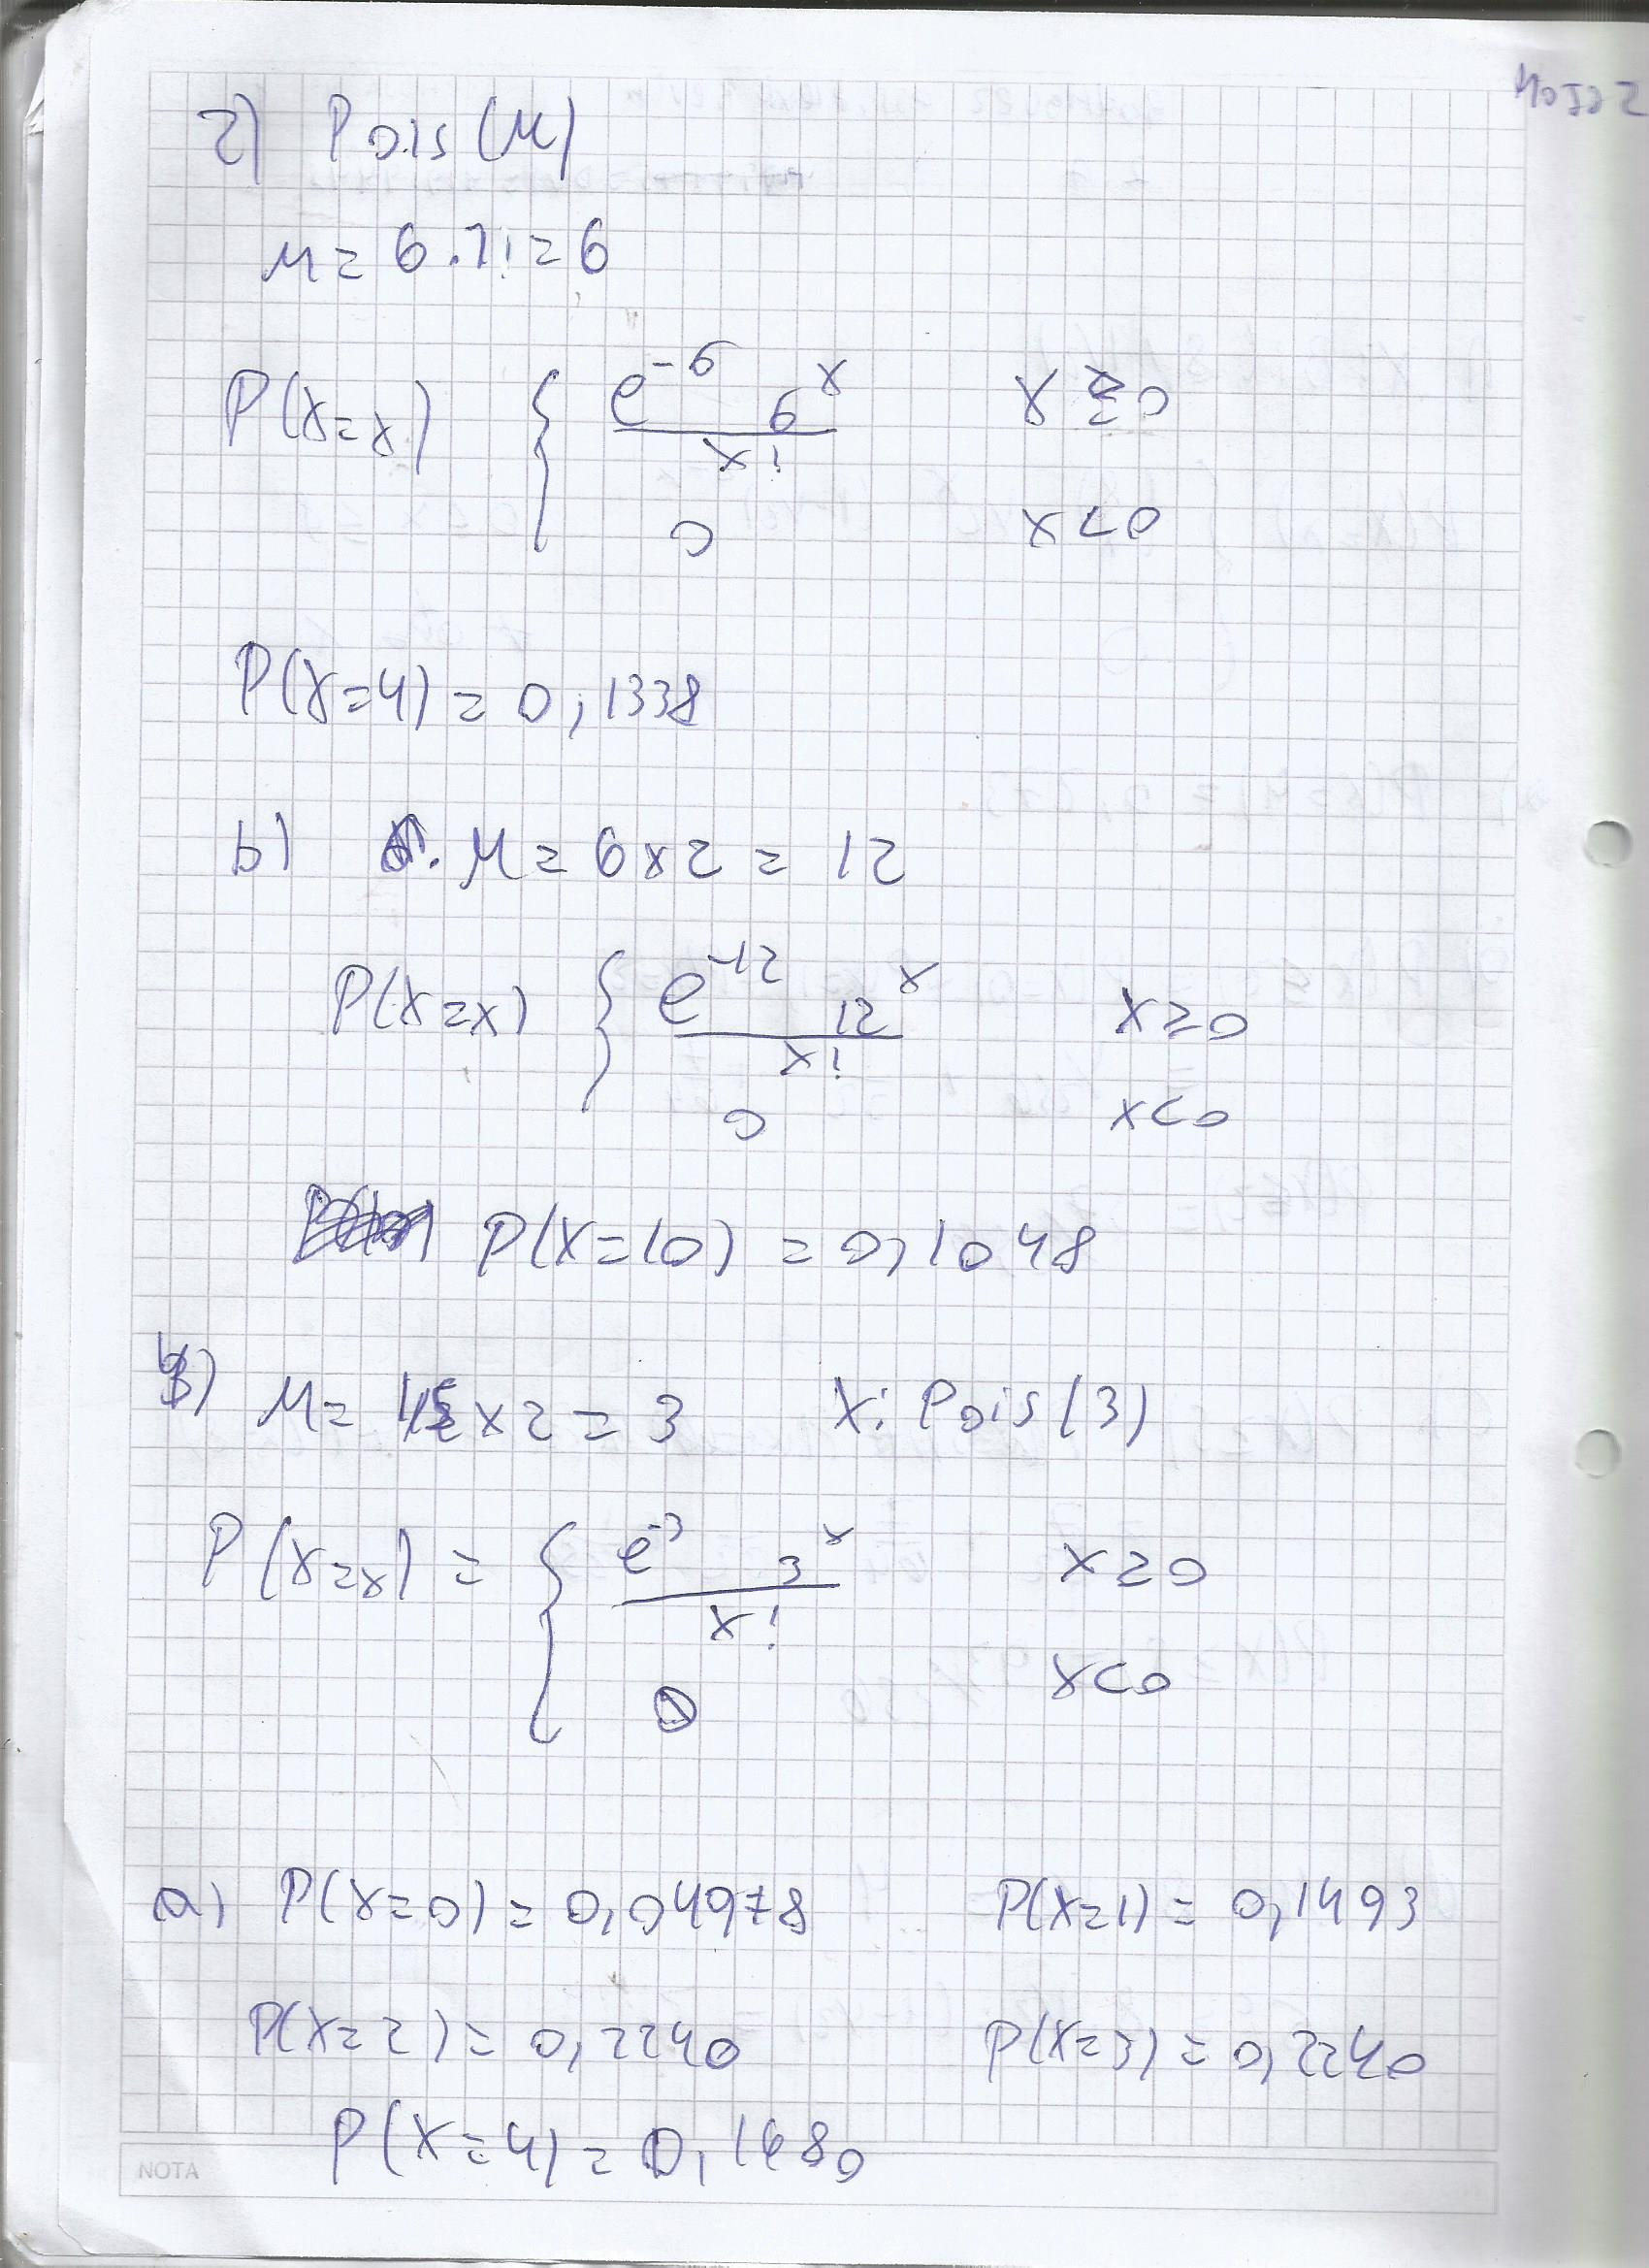 2) Pois(μ)
μ = 6.1! = 6
P(X=x) { e^-6 6^x / x!   x ≥ 0
0   x<0
P(X=4) = 0,1338
b) μ = 6x2 = 12
P(X=x) { e^-12 12^x / x!   x≥0
0   x<0
P(X=10) = 0,1048
μ = x2 = 3   X: Pois(3)
P(X=x) = { e^-3 3^x / x!   x≥0
0   x<0
a) P(X=0) = 0,04978   P(X=1) = 0,1493
P(X=2) = 0,2240   P(X=3) = 0,2240
P(X=4) = 0,1680
NOTA